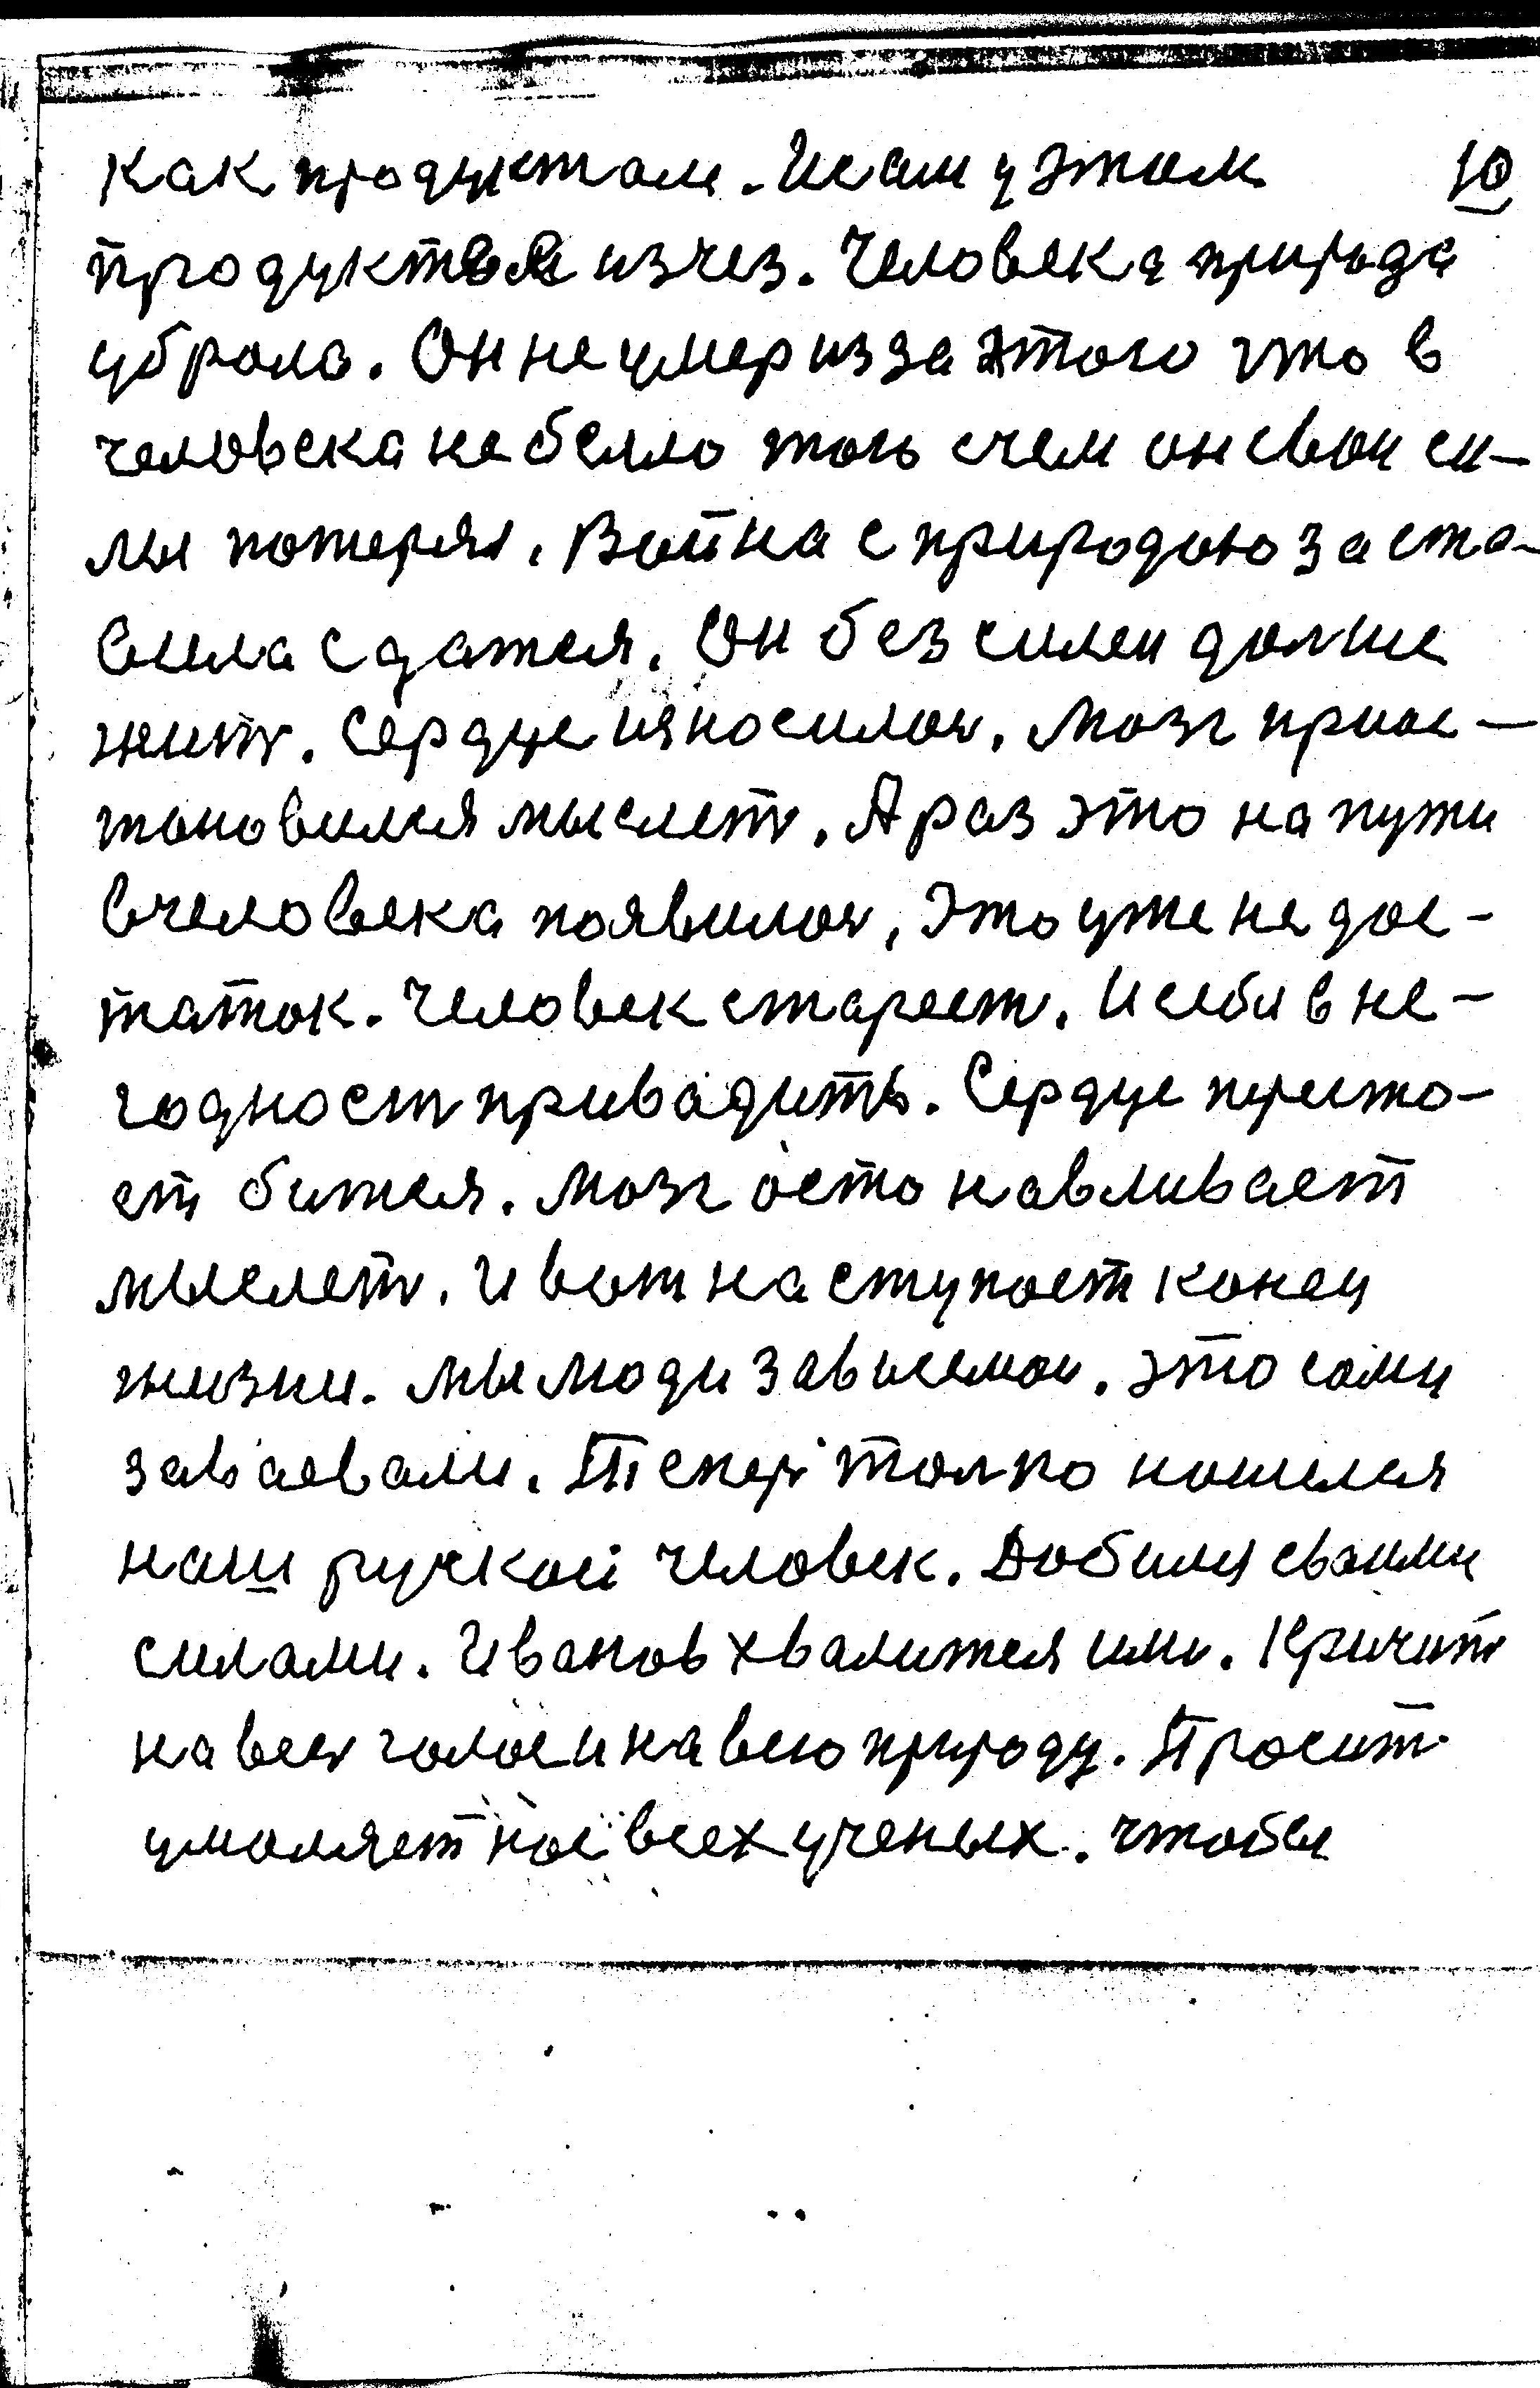 как продуктом. И сам у этом 10
продуктов изчез. Человека природа
убрала. Он не умер из за этого что в
человека не было того с чем он свои си-
лы потерял. Война с природою заста-
вила сдатся. Он безсилен долше
жить. Сердце износилось. Мозг приос-
тановился мыслеть. А раз это на пути
в человека появилось, это уже не дос-
таток. Человек стареет. И себя в не-
годность привадить. Сердце переста-
ет битися. Мозг остонавливает
мыслеть. И вот наступает конец
жизни. Мы люди зависемои. это сами
заваевали. Теперь толко нашелся
наш руской человек. Добился своими
силами. Иванов хвалится ими. Кричить
на весь голос и на всю природу. Просит
умоляет нас всех ученых. чтобы